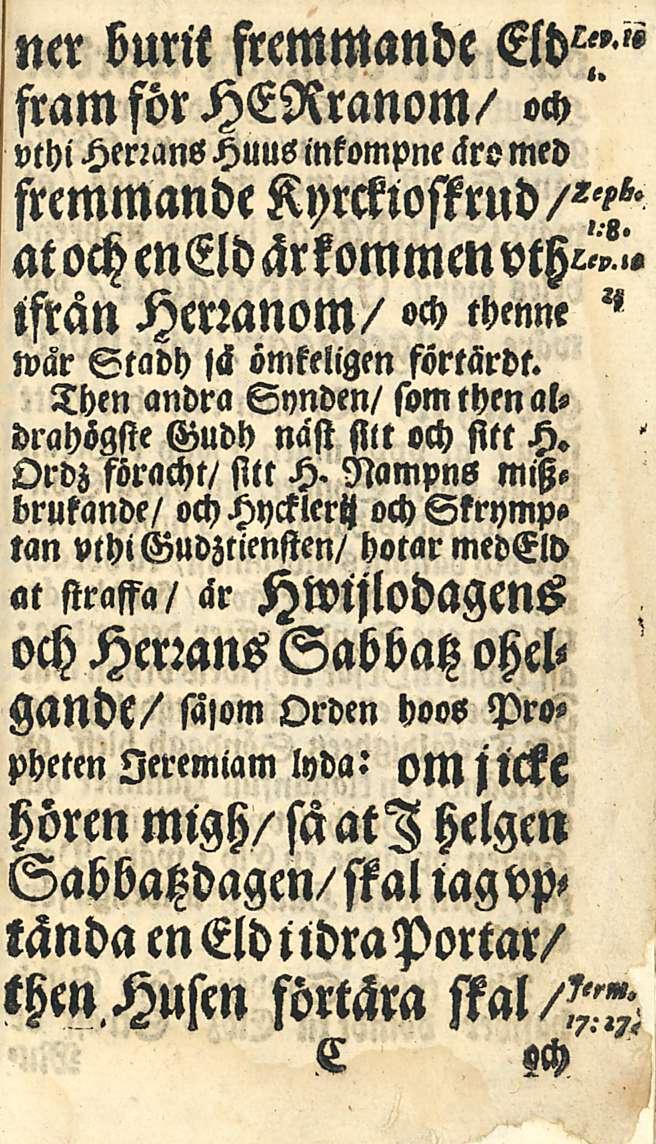 ner burit fremmande Eld Lev. 10
1.
fram för HERranom/ och
vthi Herrans Huus inkompne äro med
fremmande Kyrckioskrud / Zeph.
1:8.
at och en Eld är kommen vth Lev. 10
ifrån Herranom/ och thenne
wår Stadh så ömkeligen förtärdt.
Then andra Synden/ som then al-
drahögste Gudh näst sitt och sitt H.
Ordz föracht/ sitt H. Nampns miß-
brukande/ och Hycklerij och Skrymp-
tan vthi Gudztiensten/ hotar med Eld
at straffa/ är Hwijlodagens
och Herrans Sabbatz ohel-
gande/ såsom Orden hoos Pro-
pheten Jeremiam lyda: om j icke
hören migh/ så at J helgen
Sabbatzdagen/ skal iag vp-
tända en Eld i idra Portar/
then Husen förtära skal / Jerm.
17:27.
C och